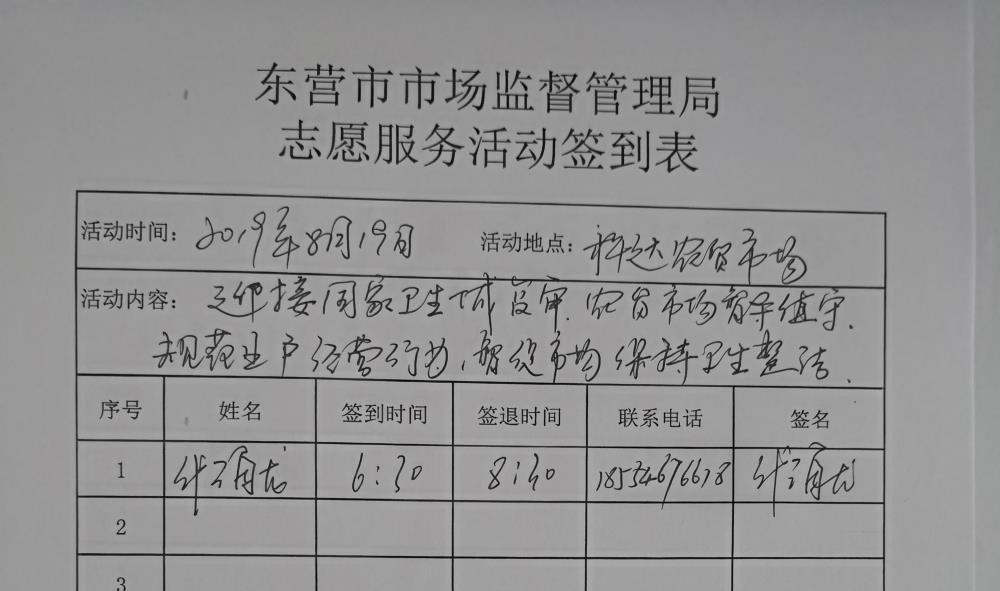 东营市市场监督管理局
志愿服务活动签到表
活动时间: 2019年8月19日 活动地点: 科达农贸市场
活动内容: 迎接国家卫生城复审.农贸市场督导值守.
规范业户经营行为,督促市场保持卫生整洁.
序号 姓名 签到时间 签退时间 联系电话 签名
1 6:30 8:30
2
3